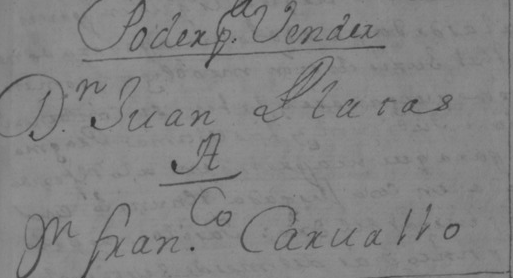 Poder pa. Vender
Dn. Juan Platas
A
Dn fran.co Caruallo